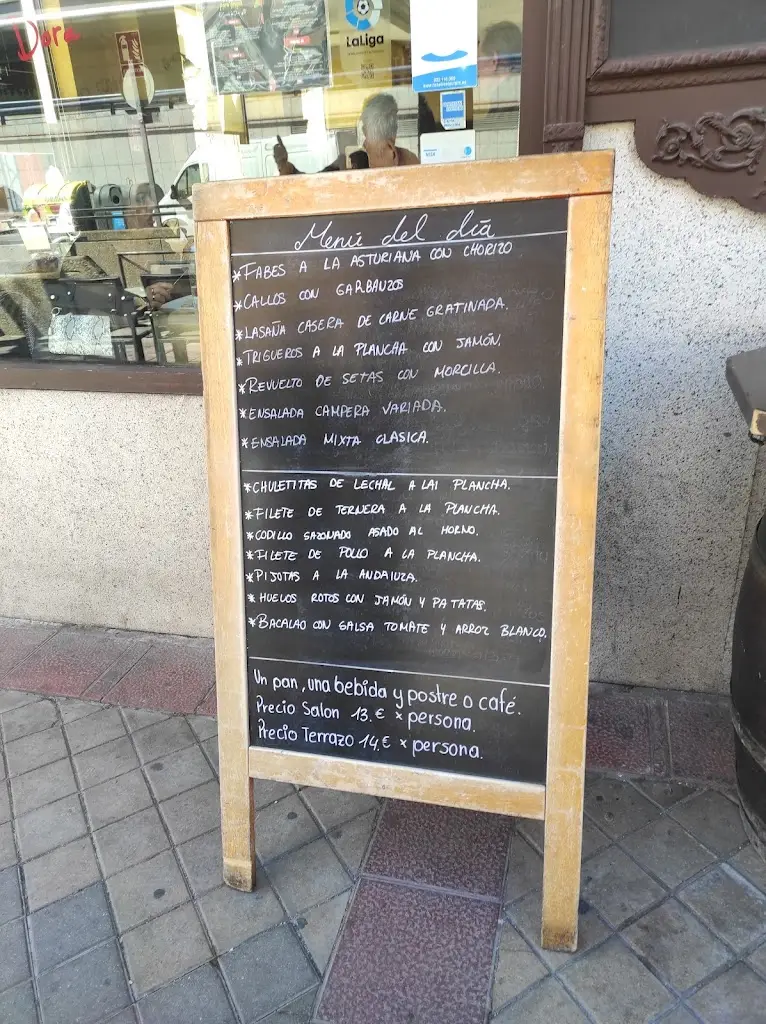 Dora
LaLiga
Menú del día
*FABES A LA ASTURIANA CON CHORIZO
*CALLOS CON GARBANZOS
*LASAÑA CASERA DE CARNE GRATINADA.
*TRIGUEROS A LA PLANCHA CON JAMÓN.
*REVUELTO DE SETAS CON MORCILLA.
*ENSALADA CAMPERA VARIADA.
*ENSALADA MIXTA CLASICA.
*CHULETITAS DE LECHAL A LAI PLANCHA.
*FILETE DE TERNERA A LA PLANCHA.
*CODILLO SAZONADO ASADO AL HORNO.
*FILETE DE POLLO A LA PLANCHA.
*PIJOTAS A LA ANDALUZA.
*HUEVOS ROTOS CON JAMÓN Y PATATAS.
*BACALAO CON SALSA TOMATE Y ARROZ BLANCO.
Un pan, una bebida y postre o café.
Precio Salon 13.€ x persona.
Precio Terrazo 14,€ x persona.